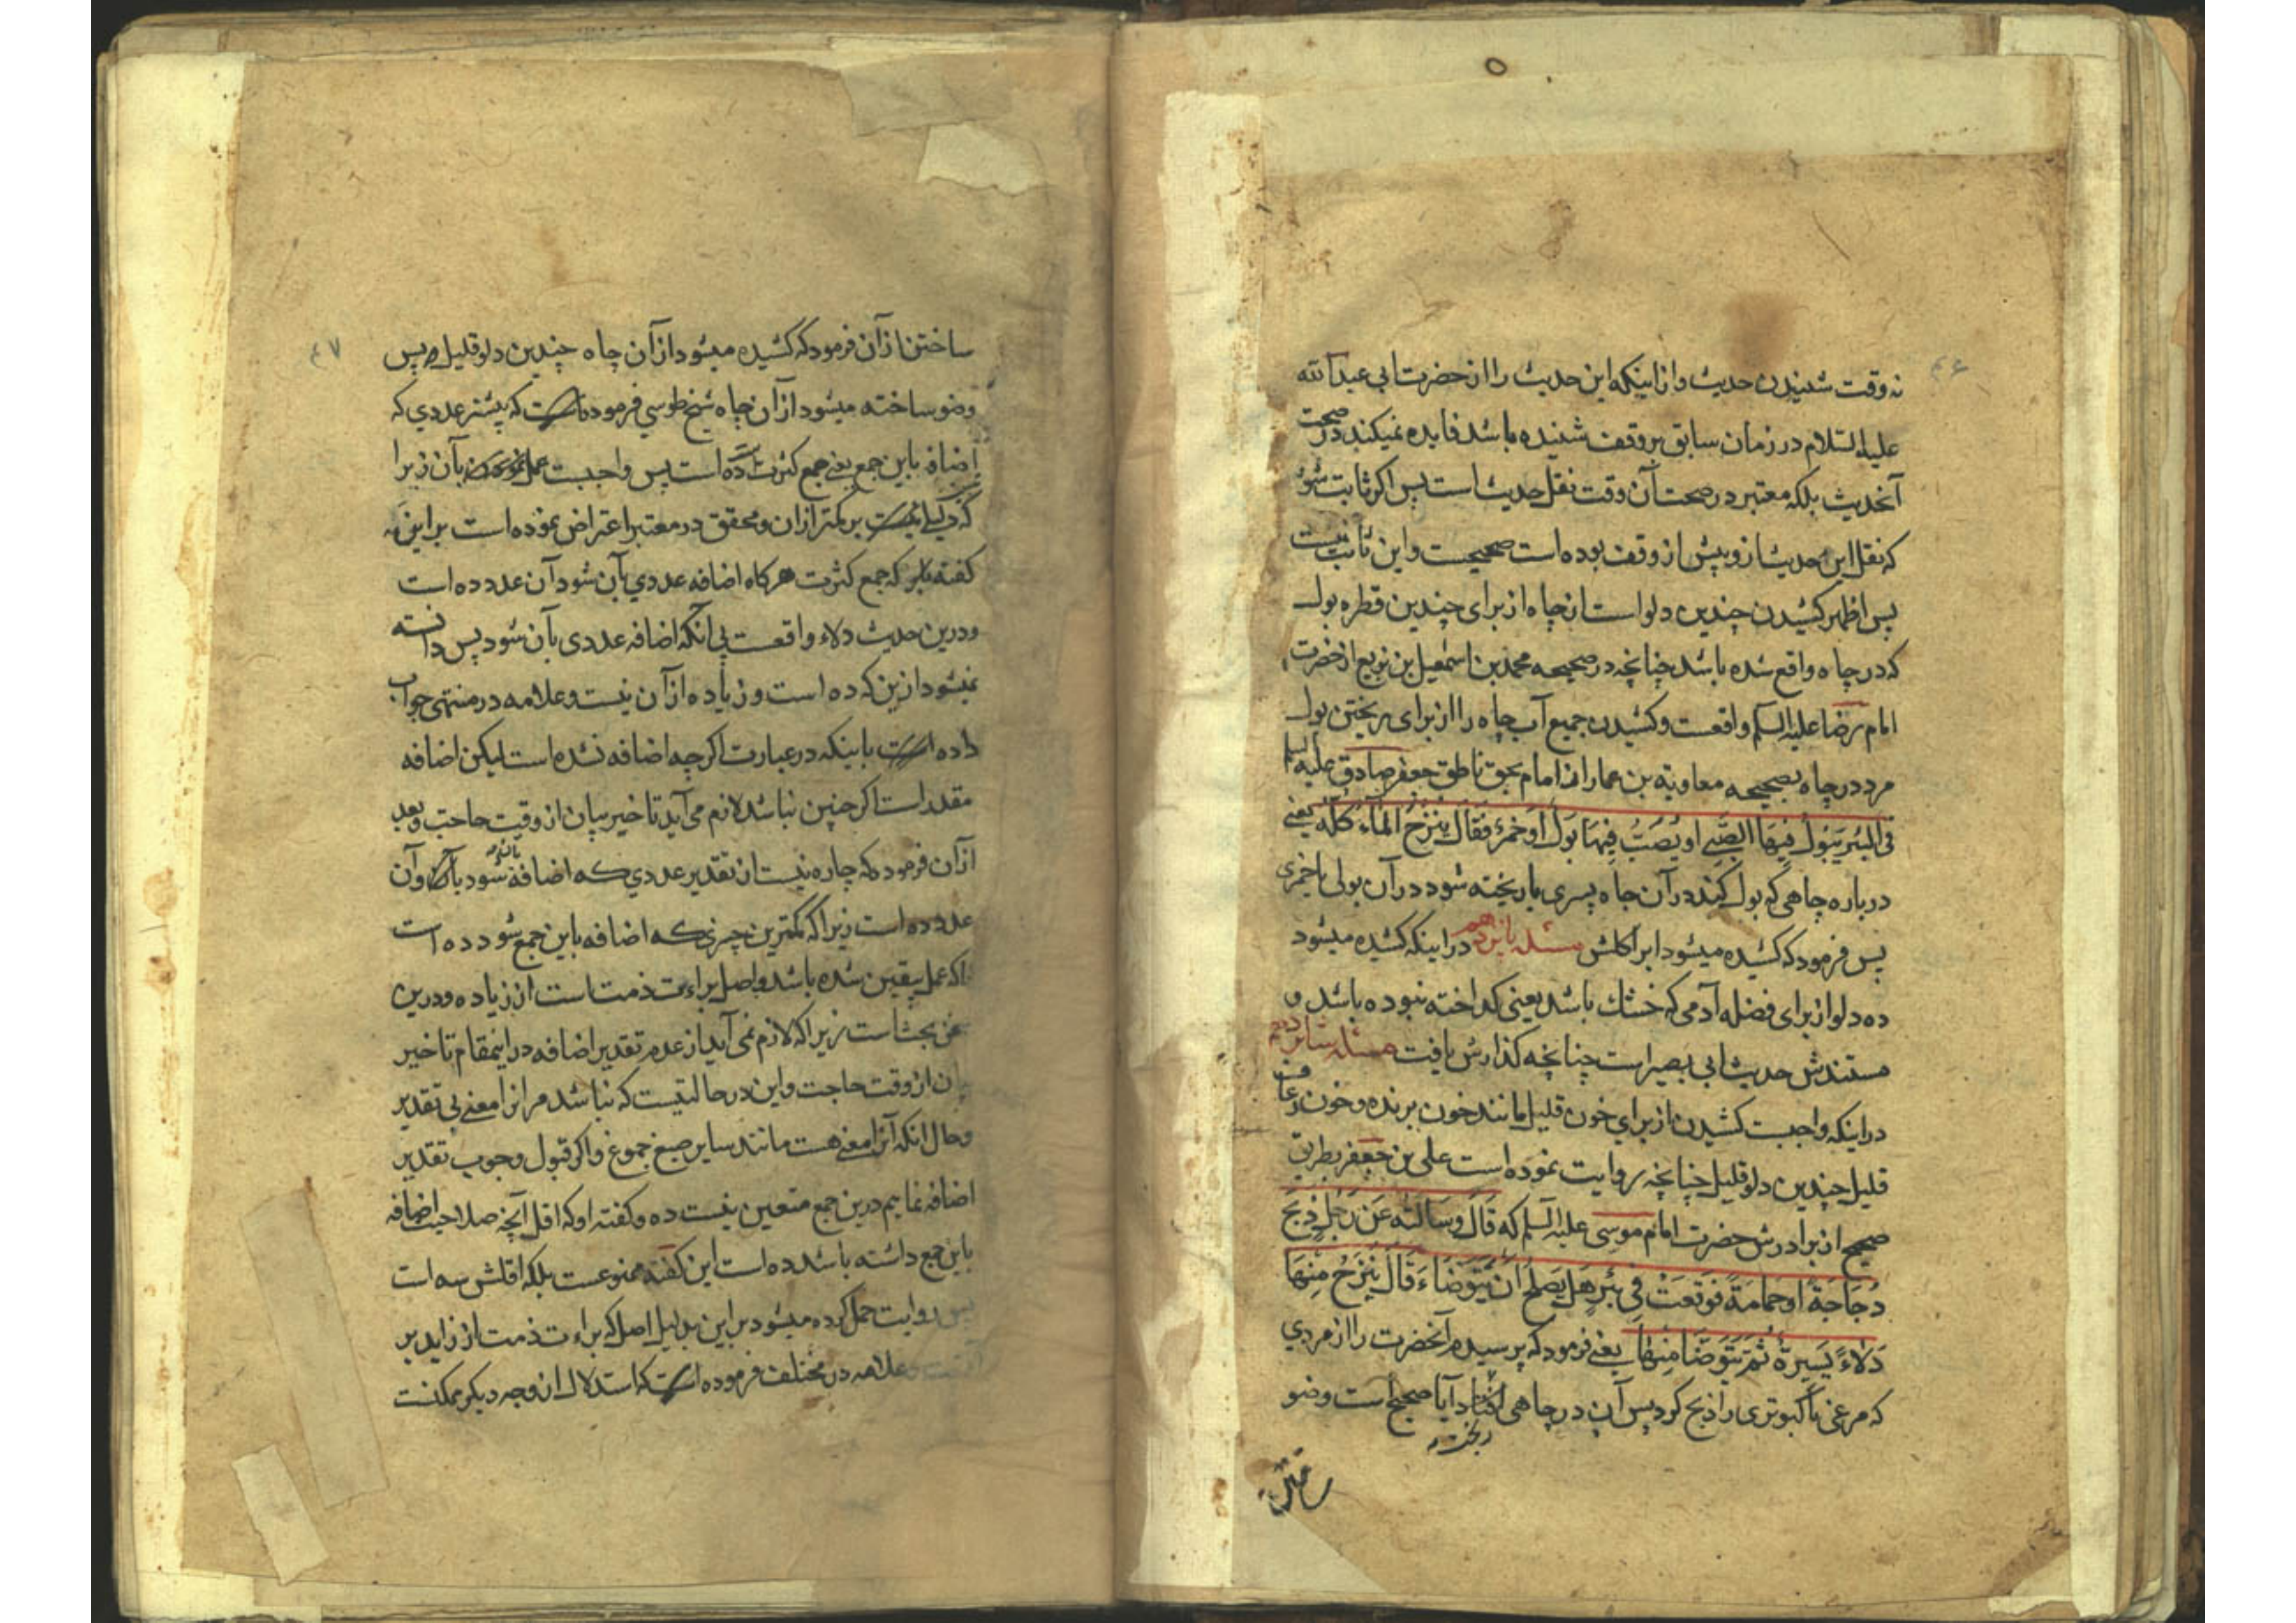 ۴۶
نه وقت شنیدن حدیث و از اینکه این حدیث را از حضرت ابی عبدالله
علیه السلام در زمان سابق بر وقف شنیده باشد فایده نمیکند در صحت
آنحدیث بلکه معتبر در صحت آن وقت نقل حدیث است پس اکر ثابت شود
که نقل این حدیث از و پیش از وقف بوده است صحیحست و این ثابت نیست
پس اظهر کشیدن چندین دلو است از چاه از برای چندین قطره بول
که در چاه واقع شده باشد چنانچه در صحیحه محمد بن اسمعیل بن بزیع از حضرت
امام رضا علیه السلم واقعست و کشیدن جمیع آب چاه را از برای ریختن بول
مرد در چاه بصحیحه معاویة بن عمار از امام بحق ناطق جعفر صادق علیه السلم
فی البئر یَبُولُ فِیهَا الصَّبِی او یُصَبُّ فِیهَا بَولٌ اَوخَمرٌ فَقَالَ یُنزَحُ المَآءُ کُلُّه یعنی
درباره چاهی که بول کند در آن چاه پسری یا ریخته شود در آن بولی یا خمری
پس فرمود که کشیده میشود ابرا کلش مسئله پانزدهم در اینکه کشیده میشود
ده دلو از برای فضله آدمی که خشك باشد یعنی کداخته نبوده باشد و
مستندش حدیث ابی بصیر است چنانچه کذارش یافت مسئله شانزدهم
در اینکه واجبست کشیدن از برای خون قلیل مانند خون پرنده و خون رعاف
قلیل چندین دلو قلیل چنانچه روایت نموده است علی بن جعفر بطریق
صحیح از برادرش حضرت امام موسی علیه السلم که قَالَ وَسَالتُه عَن رَجُلٍ ذَبَحَ
دُجَاجَةً اَوحَمامَةً فَوَقَعَتْ فِی بِئرٍ هَل یَصلحُ اَن یَتَوَضَّاءَ قَالَ یُنزَحُ مِنهَا
دِلاءً یَسِیرَةً ثُمَّ یَتَوَضَّا مِنهَا یعنی فرمود که پرسیدم آنحضرت را از مردی
که مرغی یا کبوتری را ذبح کرد پس آن در چاهی افتاد آیا صحیح است وضو
ساختن
۴۷
ساختن از آن فرمود که کشیده میشود از آن چاه چندین دلو قلیل پس
وضو ساخته میشود از آن چاه شیخ طوسی فرموده است که بیشتر عددی که
اضافه باین جمع یعنی جمع کثرت شده ده است پس واجبست عمل نمودن بآن زیرا
که دلیلی نیست بر کمتر از ان و محقق در معتبر اعتراض نموده است بر این
کفته باین که جمع کثرت هرکاه اضافه عددی بآن شود آن عدد ده است
و درین حدیث دلاء واقعست بی آنکه اضافه عددی بآن شود پس دانسته
نمیشود ازین که ده است و زیاده از آن نیست و علامه در منتهی جواب
داده است باینکه در عبارت اکرچه اضافه نشده است لیکن اضافه
مقدر است اکر چنین نباشد لازم می آید تاخیر بیان از وقت حاجت و بعد
از آن فرمود که چاره نیست از تقدیر عددی که اضافه شود و آن
عدد ده است زیرا که کمترین چیزی که اضافه باین جمع شود ده است
تا که عمل بیقین شده باشد و اصل براءت ذمت است از زیاده و درین
سخن بحث است زیرا که لازم نمی آید از عدم تقدیر اضافه در اینمقام تاخیر
بیان از وقت حاجت و این در حالتیست که نباشد مر انرا معنی بی تقدیر
و حال انکه آنرا معنی هست مانند سایر صیغ جموع و اکر قبول وجوب تقدیر
اضافه نماییم درین جمع متعین نیست ده و کفته او که اقل آنچه صلاحیت اضافه
باین جمع داشته باشد ده است این کفته ممنوعست بلکه اقلش سه است
پس روایت حمل کرده میشود بر این بدلیل اصل که براءت ذمت از زاید بر
و علامه در مختلف فرموده است که استدلال از وجه دیکر ممکنست